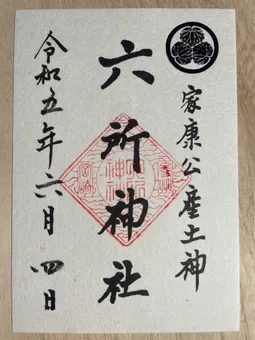 家康公産土神
六所神社
令和五年六月四日